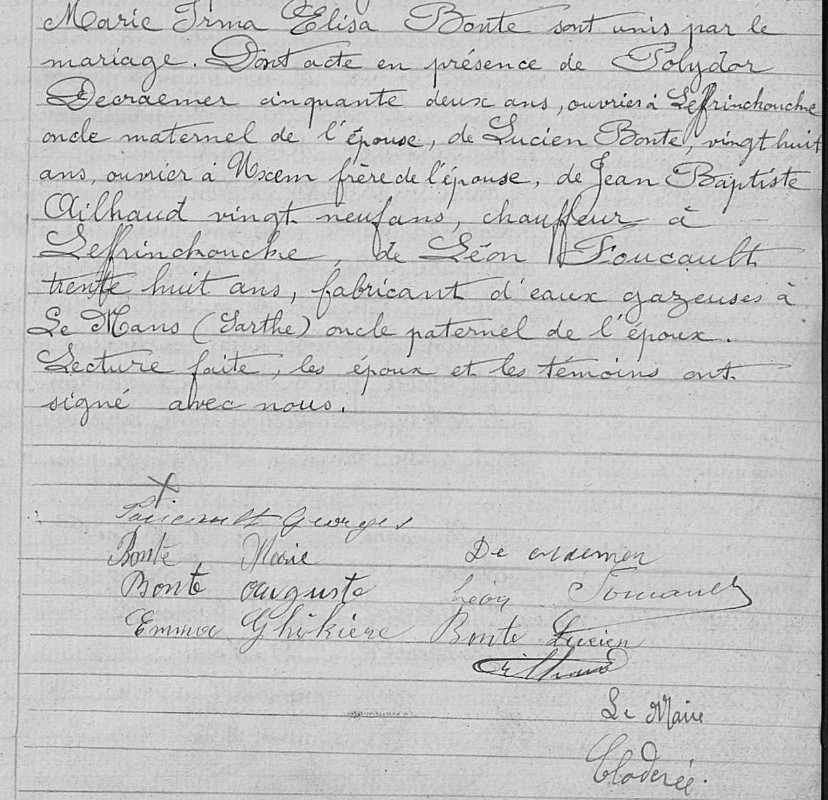 Marie Irma Elisa Bonte sont unis par le
mariage. Dont acte en présence de Polydor
Decraemer cinquante deux ans, ouvrier à Leffrinchoucke
oncle maternel de l'épouse, de Lucien Bonte, vingt huit
ans, ouvrier a Uxem frère de l'épouse, de Jean Baptiste
Ailhaud vingt neuf ans, chauffeur à
Leffrinchoucke, de Léon Foucault
trente huit ans, fabricant d'eaux gazeuses à
Le Mans (Sarthe) oncle paternel de l'époux.
Lecture faite, les epoux et les témoins ont
signé avec nous.
X
Foucault Georges
Bonte Marie
Bonte Auguste
Emma
Leon Foucault
Bonte Lucien
Ailhaud
Le Maire